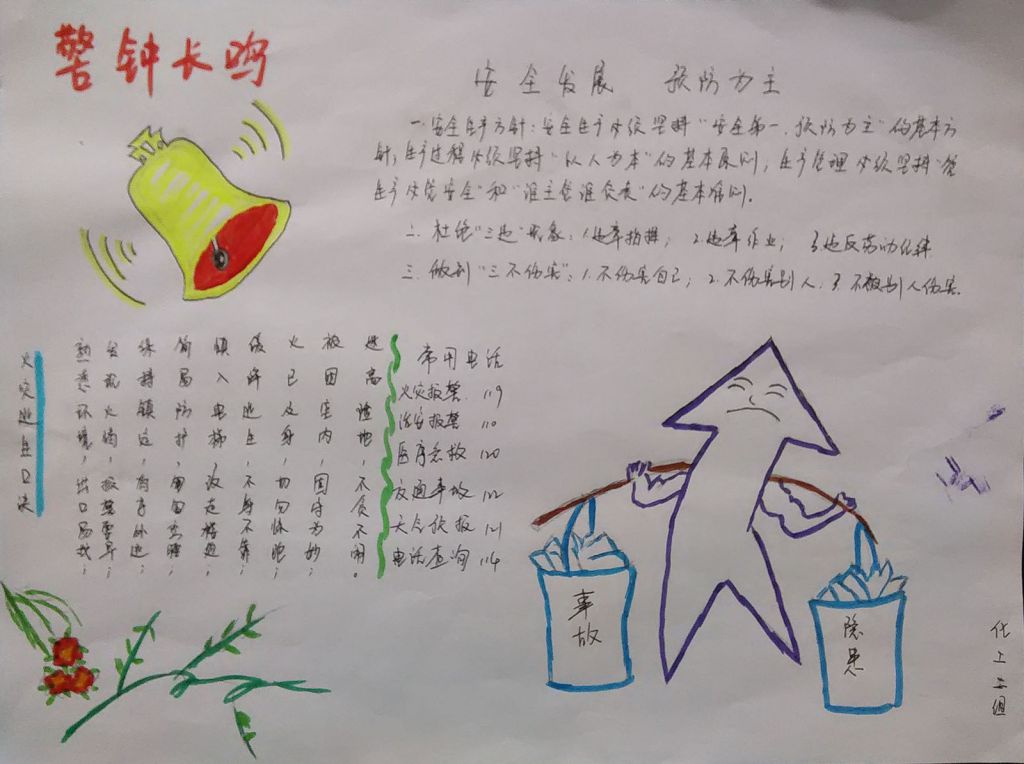 警钟长鸣
安全发展 预防为主
一.安全生产方针：安全生产必须坚持"安全第一，预防为主"的基本方
针，生产过程必须坚持"以人为本"的基本原则，生产管理必须坚持"管
生产必管安全"和"谁主管谁负责"的基本原则.
二.杜绝"三违"现象：1.违章指挥； 2.违章作业； 3.违反劳动纪律.
三.做到"三不伤害"：1.不伤害自己；2.不伤害别人.3.不被别人伤害.
火灾逃生口诀
熟悉环境，出口易找；
发现火情，报警要早；
保持镇定，有序外逃；
简易防护，匍匐
慎入电梯，改走楼道；
缓降逃生，不等不靠；
火已及身，切勿惊跑；
被困室内，固守为妙；
远离险地，不贪不闹。
常用电话
火灾报警 119
治安报警 110
医疗急救 120
交通事故 122
天气预报 121
电话查询 114
事故
隐患
化上二组